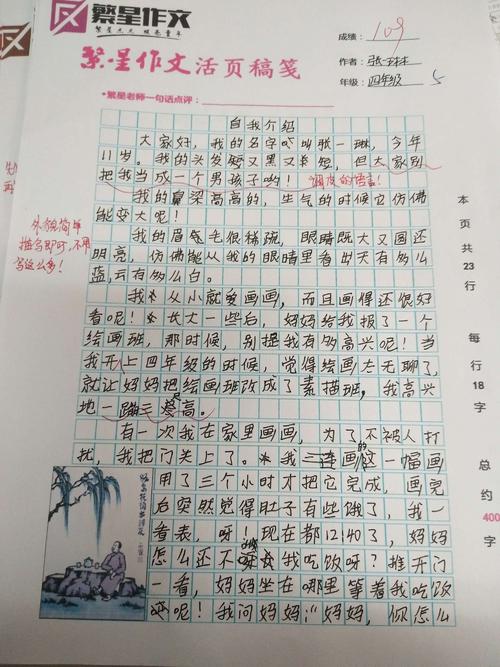 繁星作文
繁星点点 照亮童年
成绩： 109
繁星作文活页稿笺
作者： 张一琳
年级： 四年级
•繁星老师一句话点评：
自我介绍
大家好，我的名字叫张一琳，今年
11岁。我的头发短又黑又短，但大家别
把我当成一个男孩子哟！ 调皮的语言！
我的鼻梁高高的，生气的时候它仿佛
能变大呢！
外貌简单
描写即可，不用
写这么多！
我的眉毛很稀疏，眼睛既大又圆还
明亮，仿佛能从我的眼睛里看出天有多么
蓝，云有多么白。
我从小就爱画画，而且画得还很好
看呢！长大一些后，妈妈给我报了一个
绘画班，那时候，别提我有多高兴呢！当
我升上四年级的时候，觉得绘画太无聊了，
就让妈妈把绘画班改成了素描班，我高兴
地一蹦三尺高。
有一次我在家里画画，为了不被人打
扰，我把门关上了。我画的这一幅画
用了三个小时才把它完成，画完
后突然觉得肚子有些饿了，我一
看表，呀！现在都12:40了，妈妈
怎么还不喊我吃饭呀？推开门
一看，妈妈坐在哪里等着我吃饭
呢！我问妈妈：“妈妈，你怎么
本页共23行
每行18字
总约400字